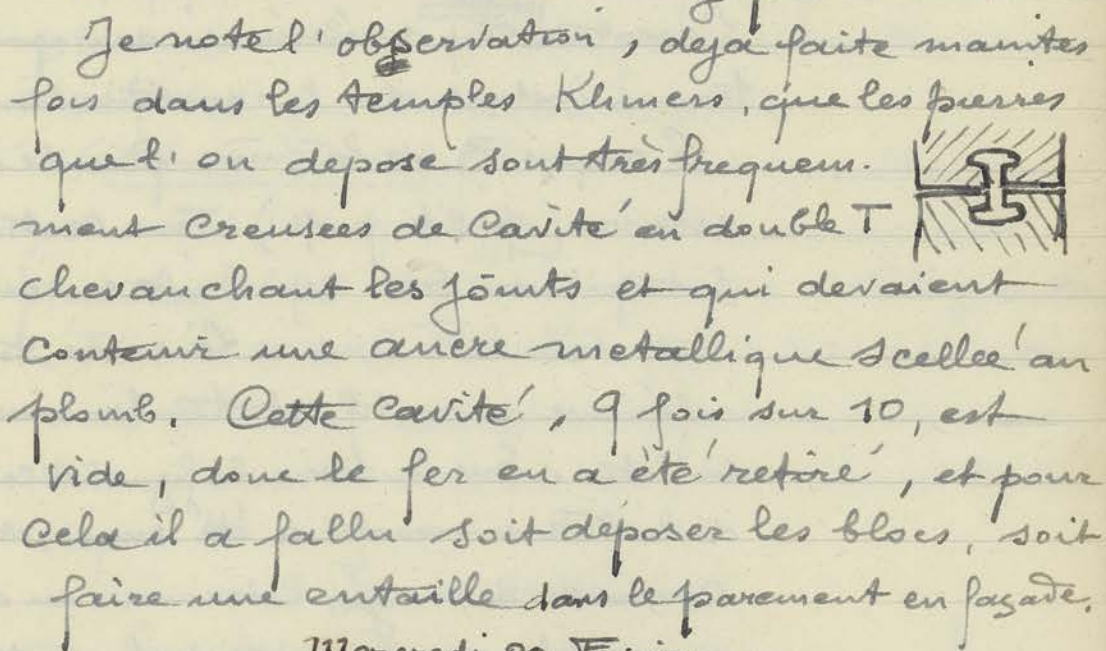 Je note l'observation, deja faite maintes
fois dans les temples Khmers, que les pierres
que l'on depose sont très frequem-
ment creusees de cavité en double T
chevauchant les joints et qui devaient
contenir une ancre metallique scellée au
plomb. Cette cavité, 9 fois sur 10, est
vide, donc le fer en a été retiré, et pour
cela il a fallu soit déposer les blocs, soit
faire une entaille dans le parement en façade.
Mercredi